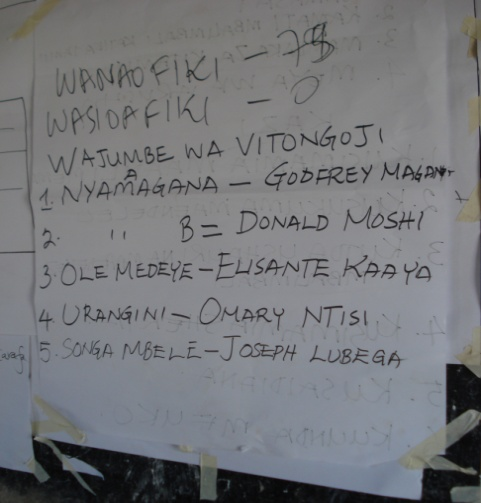 WANAOFIKI -
WASIOAFIKI - 0
WAJUMBE WA VITONGOJI
1. NYAMAGANA A - GODFREY
2. " B = DONALD MOSHI
3. OLE MEDEYE - ELISANTE KAAYA
4 URANGINI - OMARY NTISI
5. SONGA MBELE - JOSEPH LUBEGA